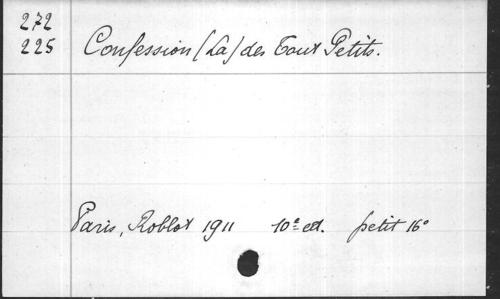 272
225 Confession (La) des Tout Petits.
Paris, Roblot 1911 10e ed. petit 16°